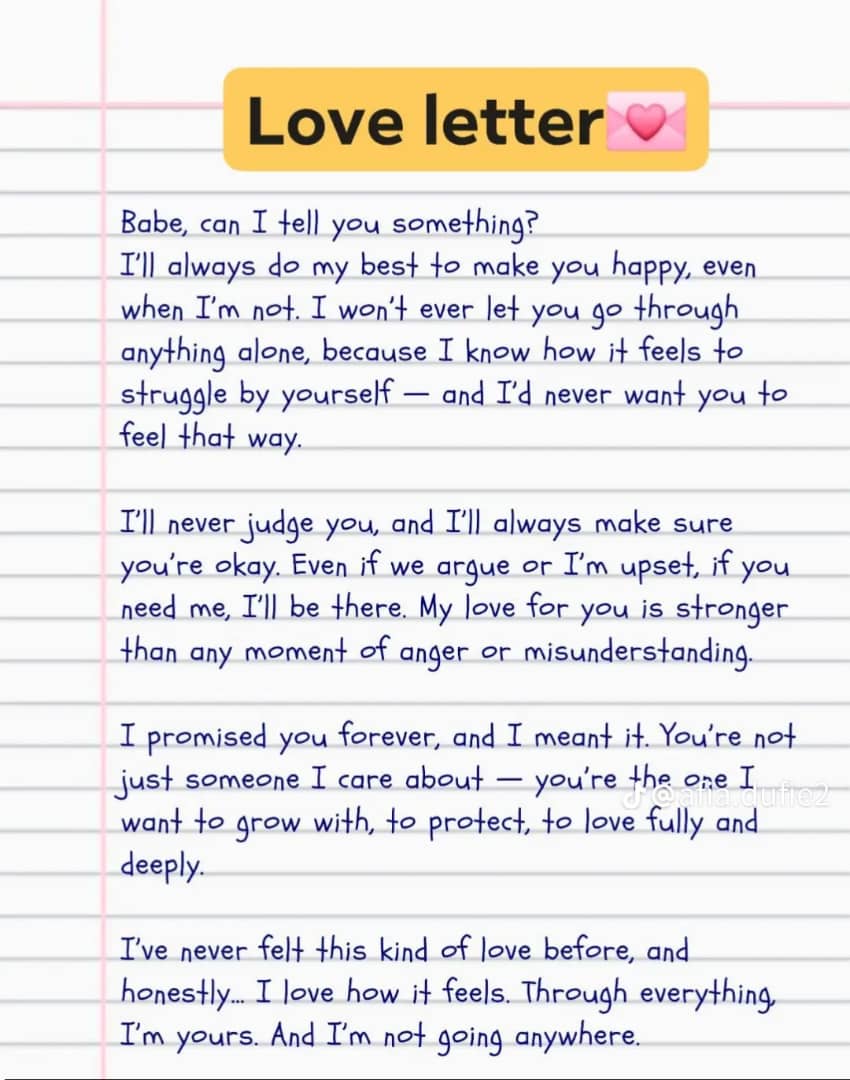 Love letter💌
Babe, can I tell you something?
I'll always do my best to make you happy, even
when I'm not. I won't ever let you go through
anything alone, because I know how it feels to
struggle by yourself — and I'd never want you to
feel that way.
I'll never judge you, and I'll always make sure
you're okay. Even if we argue or I'm upset, if you
need me, I'll be there. My love for you is stronger
than any moment of anger or misunderstanding.
I promised you forever, and I meant it. You're not
just someone I care about — you're the one I
@afia.dufie2
want to grow with, to protect, to love fully and
deeply.
I've never felt this kind of love before, and
honestly... I love how it feels. Through everything,
I'm yours. And I'm not going anywhere.